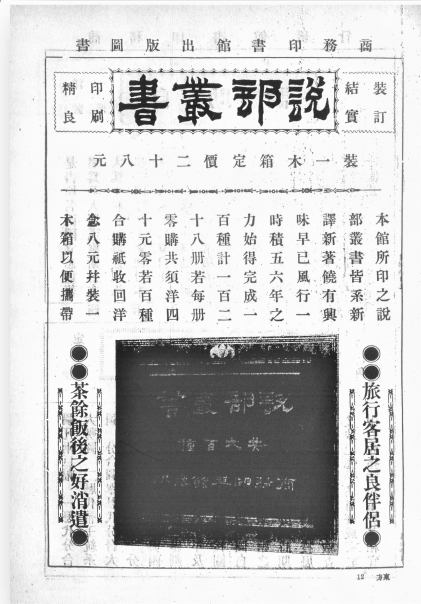 商務印書館出版圖書
裝訂
結實
說部叢書
印刷
精良
裝一木箱定價二十八元
本館所印之說
部叢書皆系新
譯新著饒有興
味早已風行一
時積五六年之
力始得完成一
百種計一百二
十八册若每册
零購共須洋四
十元零若百種
合購祗收回洋
念八元幷裝一
木箱以便攜帶
●●旅行客居之良伴侶●
說部叢書
百種
●●茶餘飯後之好消遣●
東方 12